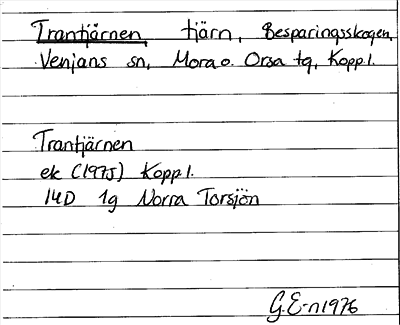 Trantjärnen, tjärn, Besparingsskogen,
Venjans sn, Mora o. Orsa tg, Kopp.l.
Trantjärnen
ek (1975) Kopp.l.
14D 1g Norra Torsjön
G.E-n 1976